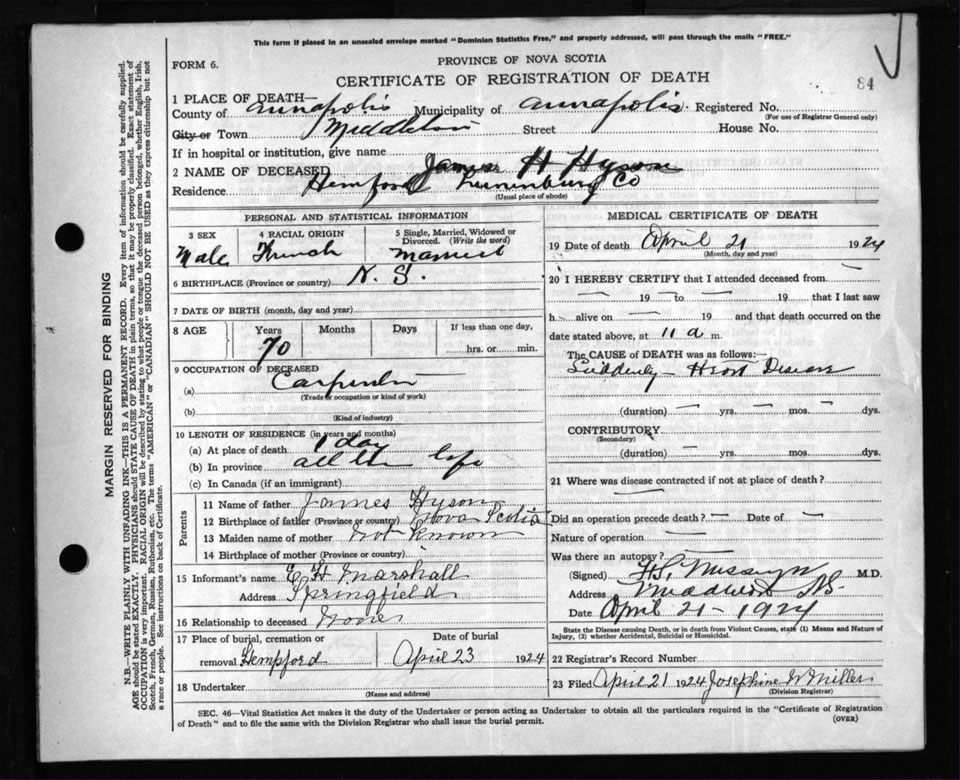 This form if placed in an unsealed envelope marked "Dominion Statistics Free," and properly addressed, will pass through the mails "FREE."
FORM 6.
PROVINCE OF NOVA SCOTIA
CERTIFICATE OF REGISTRATION OF DEATH
84
1 PLACE OF DEATH—
County of Annapolis Municipality of Annapolis Registered No.
(For use of Registrar General only)
City or Town Middleton Street House No.
If in hospital or institution, give name
2 NAME OF DECEASED James H Hyson
Residence Hemford Lunenburg Co
(Usual place of abode)
PERSONAL AND STATISTICAL INFORMATION
3 SEX 4 RACIAL ORIGIN 5 Single, Married, Widowed or Divorced. (Write the word)
Male French Married
6 BIRTHPLACE (Province or country) N. S.
7 DATE OF BIRTH (month, day and year)
8 AGE Years Months Days If less than one day,
70 hrs. or min.
9 OCCUPATION OF DECEASED
(a) Carpenter
(Trade or occupation or kind of work)
(b)
(Kind of industry)
10 LENGTH OF RESIDENCE (in years and months)
(a) At place of death 1 day
(b) In province all his life
(c) In Canada (if an immigrant)
Parents
11 Name of father James Hyson
12 Birthplace of father (Province or country) Nova Scotia
13 Maiden name of mother Not Known
14 Birthplace of mother (Province or country)
15 Informant's name E H Marshall
Address Springfield
16 Relationship to deceased None
17 Place of burial, cremation or Date of burial
removal Hempford April 23 1924
18 Undertaker
(Name and address)
MEDICAL CERTIFICATE OF DEATH
19 Date of death April 21 1924
(Month, day and year)
20 I HEREBY CERTIFY that I attended deceased from —
— 19 — to — 19 that I last saw
h — alive on — 19 and that death occurred on the
date stated above, at 11 a m.
The CAUSE of DEATH was as follows:
Suddenly — Heart Disease
(duration) — yrs. — mos. — dys.
CONTRIBUTORY
(Secondary)
(duration) — yrs. mos. dys.
21 Where was disease contracted if not at place of death?
Did an operation precede death? — Date of —
Nature of operation —
Was there an autopsy? —
(Signed) M.D.
Address N.S.
Date April 21 - 1924
State the Disease causing Death, or in death from Violent Causes, state (1) Means and Nature of
Injury, (2) whether Accidental, Suicidal or Homicidal.
22 Registrar's Record Number
23 Filed April 21 1924 Josephine W Miller
(Division Registrar)
SEC. 46—Vital Statistics Act makes it the duty of the Undertaker or person acting as Undertaker to obtain all the particulars required in the "Certificate of Registration
of Death" and to file the same with the Division Registrar who shall issue the burial permit. (OVER)
MARGIN RESERVED FOR BINDING
N.B.—WRITE PLAINLY WITH UNFADING INK—THIS IS A PERMANENT RECORD. Every item of information should be carefully supplied.
AGE should be stated EXACTLY. PHYSICIANS should STATE CAUSE OF DEATH in plain terms, so that it may be properly classified. Exact statement of
OCCUPATION is very important. RACIAL ORIGIN will be described by stating to what people or tongue the deceased person belonged, whether English, Irish,
Scotch, French, German, Russian, Ruthenian, etc. The terms "AMERICAN" or "CANADIAN" SHOULD NOT BE USED as they express citizenship but not
a race or people. See instructions on back of Certificate.